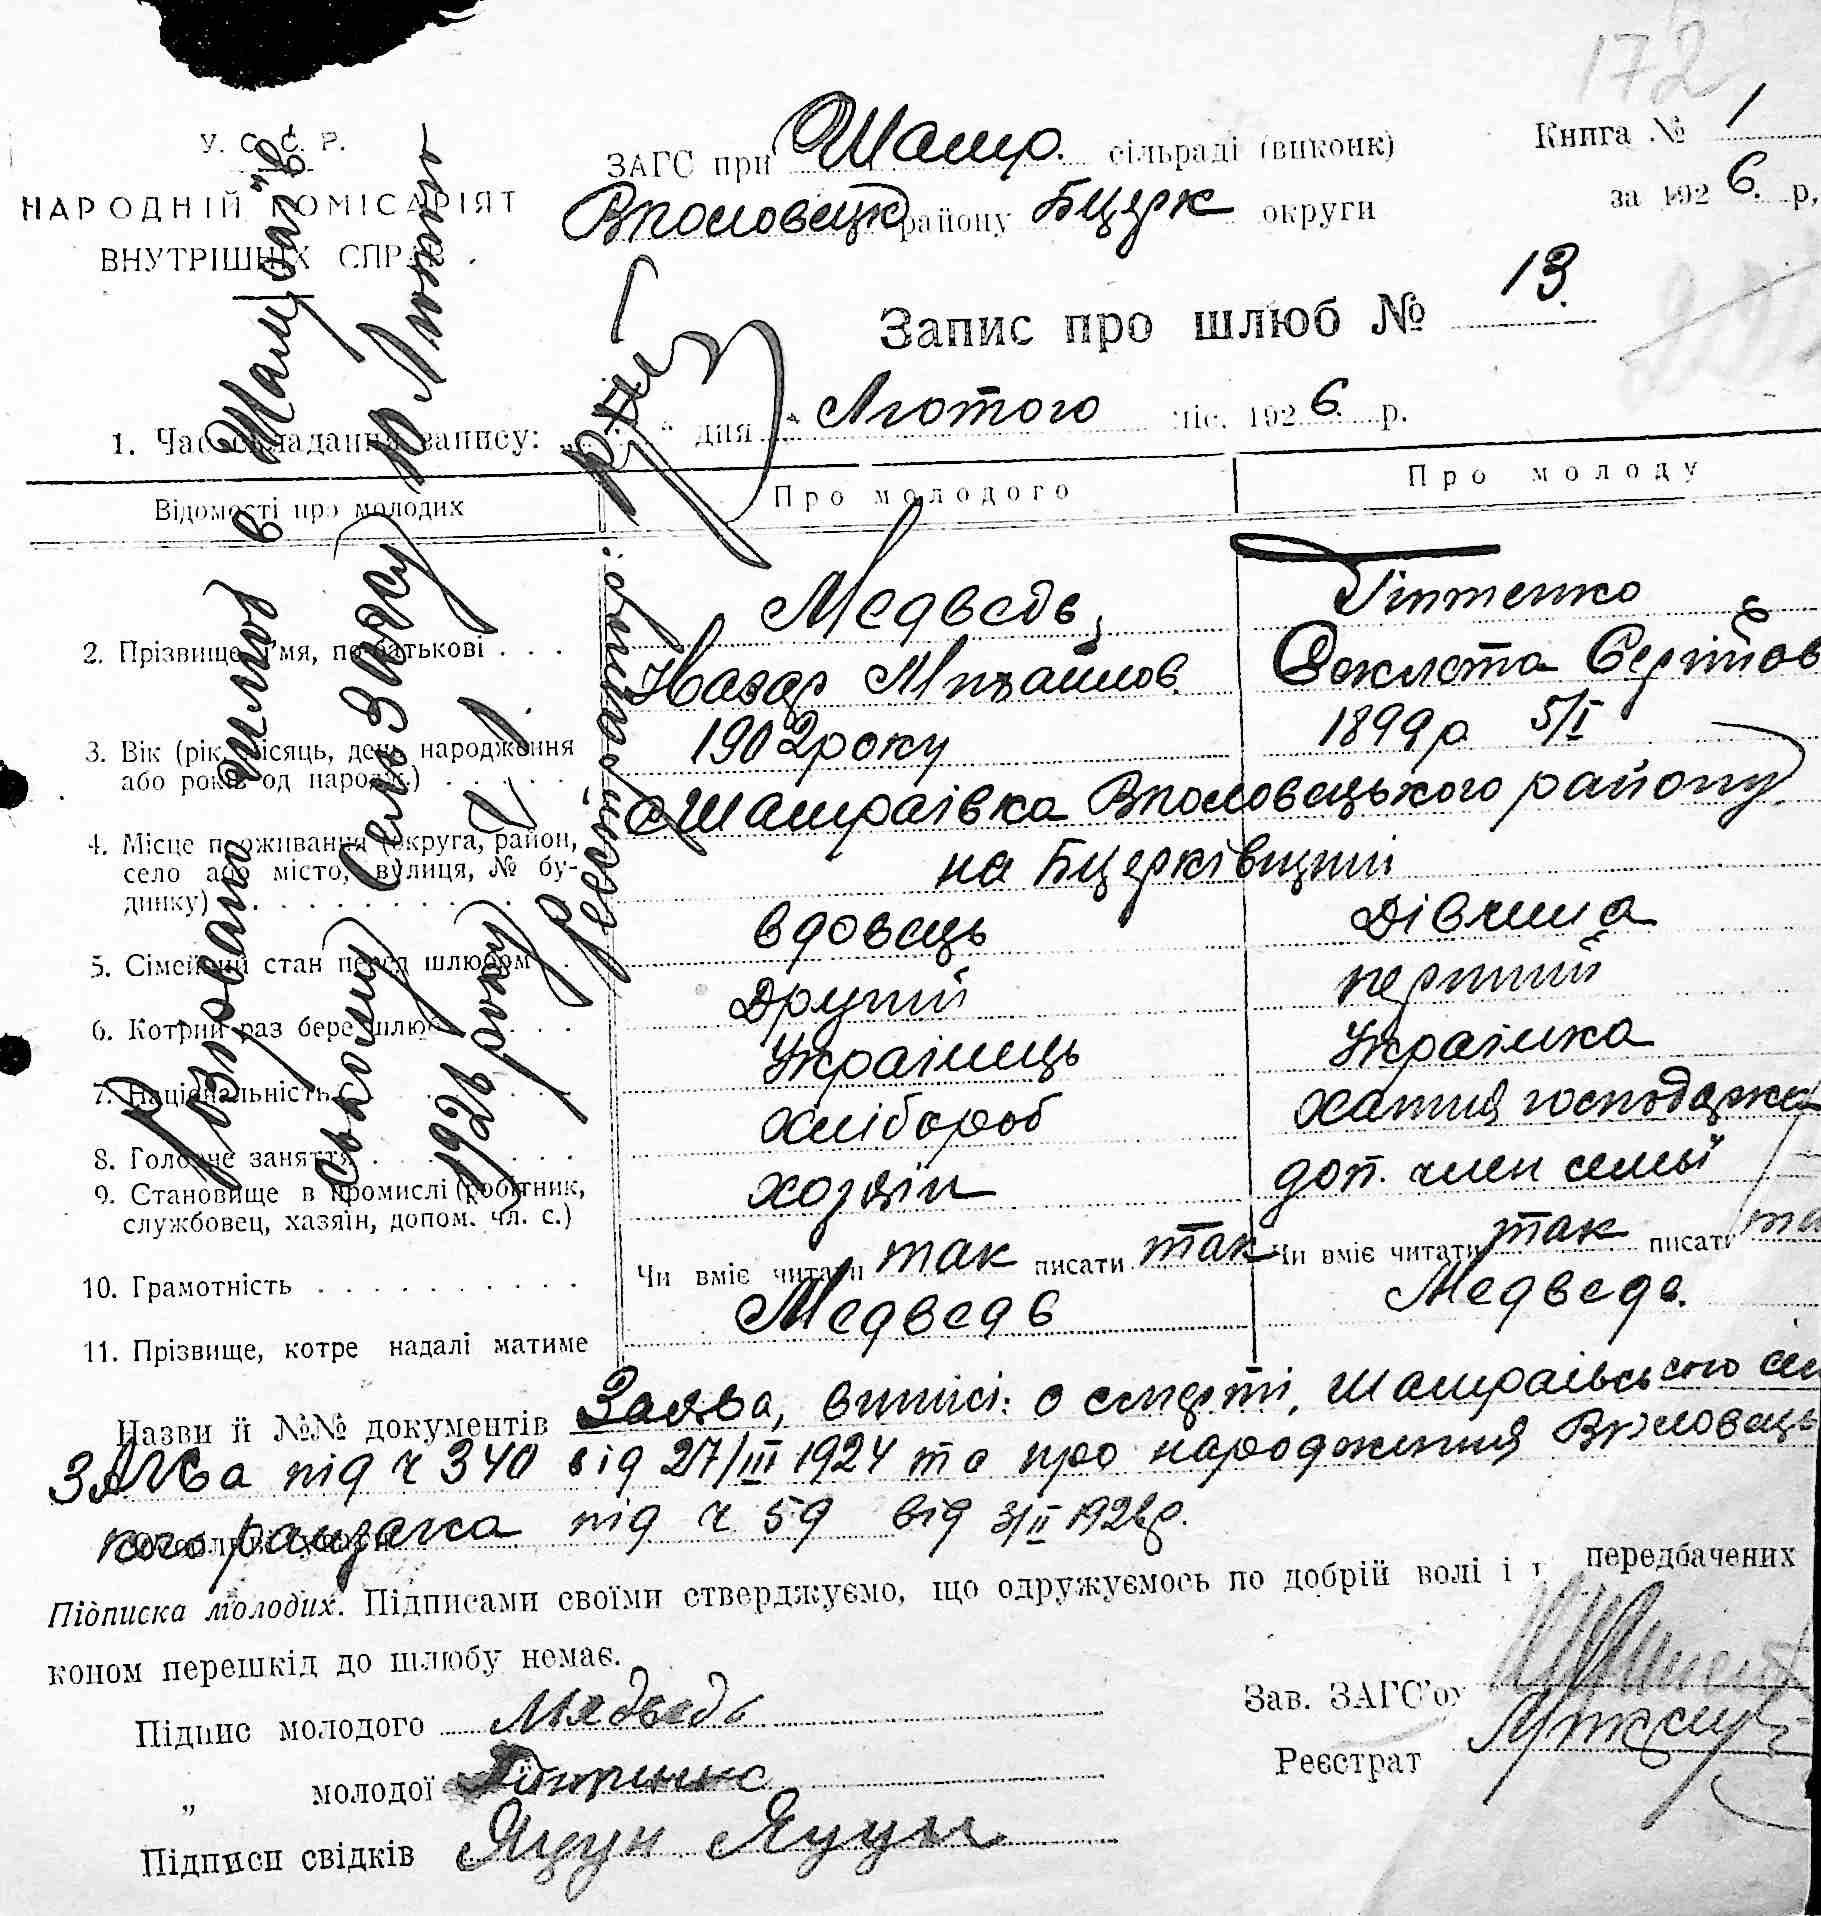 172
У. С. С. Р.
НАРОДНІЙ КОМІСАРІЯТ
ВНУТРІШНІХ СПРАВ.
ЗАГС при Шамр. сільраді (виконк)
району Бцерк округи
Книга № 1
за 1926 р,
Запис про шлюб № 13.
1. Час складання запису: " дня " Лютого міс. 1926 р.
Відомості про молодих
Про молодого
Про молоду
2. Прізвище, ім'я, по батькові . . .
Медведь,
Назар Михайлов.
Сергійов
3. Вік (рік, місяць, день народження
або років од народж.) . . . . .
1902 року
1899 р 5/I
4. Місце проживання (округа, район,
село або місто, вулиця, № бу-
динку) . . . . . . . . . .
с Шамраівка району
на Бцерківщині
5. Сімейний стан перед шлюбом . .
вдовець
Дівчина
6. Котрий раз бере шлюб . . . .
Другий
перший
7. Національність . . . . . .
Украінець
Украінка
8. Головне заняття . . . . . .
хлібороб
хатня господарка
9. Становище в промислі (робітник,
службовец, хазяїн, допом. чл. с.)
хозяін
доп. член семьї
10. Грамотність . . . . . . . . . .
Чи вміє читати так писати так
Чи вміє читати так писати та
11. Прізвище, котре надалі матиме
Медведь
Медведь.
Назви й №№ документів Заява, виписі: о смерті, Шамраівського сіл
ЗАГСа під ч 340 від 27/III 1924 та про народження
кого під ч 59 від 3/II 1926 р.
Підписка молодих. Підписами своїми стверджуємо, що одружуємось по добрій волі і передбачених
коном перешкід до шлюбу немає.
Підпис молодого Медведь
„ молодої
Підписи свідків Яцун Яцун
Зав. ЗАГС'ом
Реєстрат
Розірвано шлюб в Шамраів
ському СельЗагсу 10 Лютого
1926 року
Реєстратор: